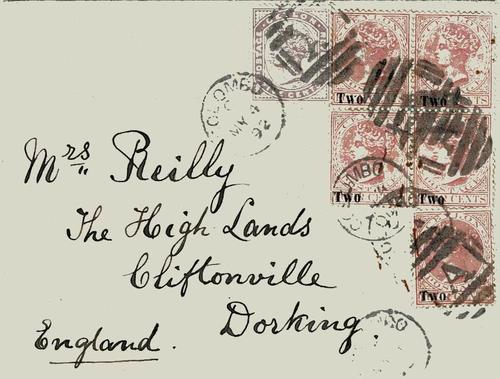 POSTAGE
Two Two
Two CENTS
Two CENTS
COLOMBO
MY 4
92
Mrs Reilly
The High Lands
Cliftonville
Dorking
England.